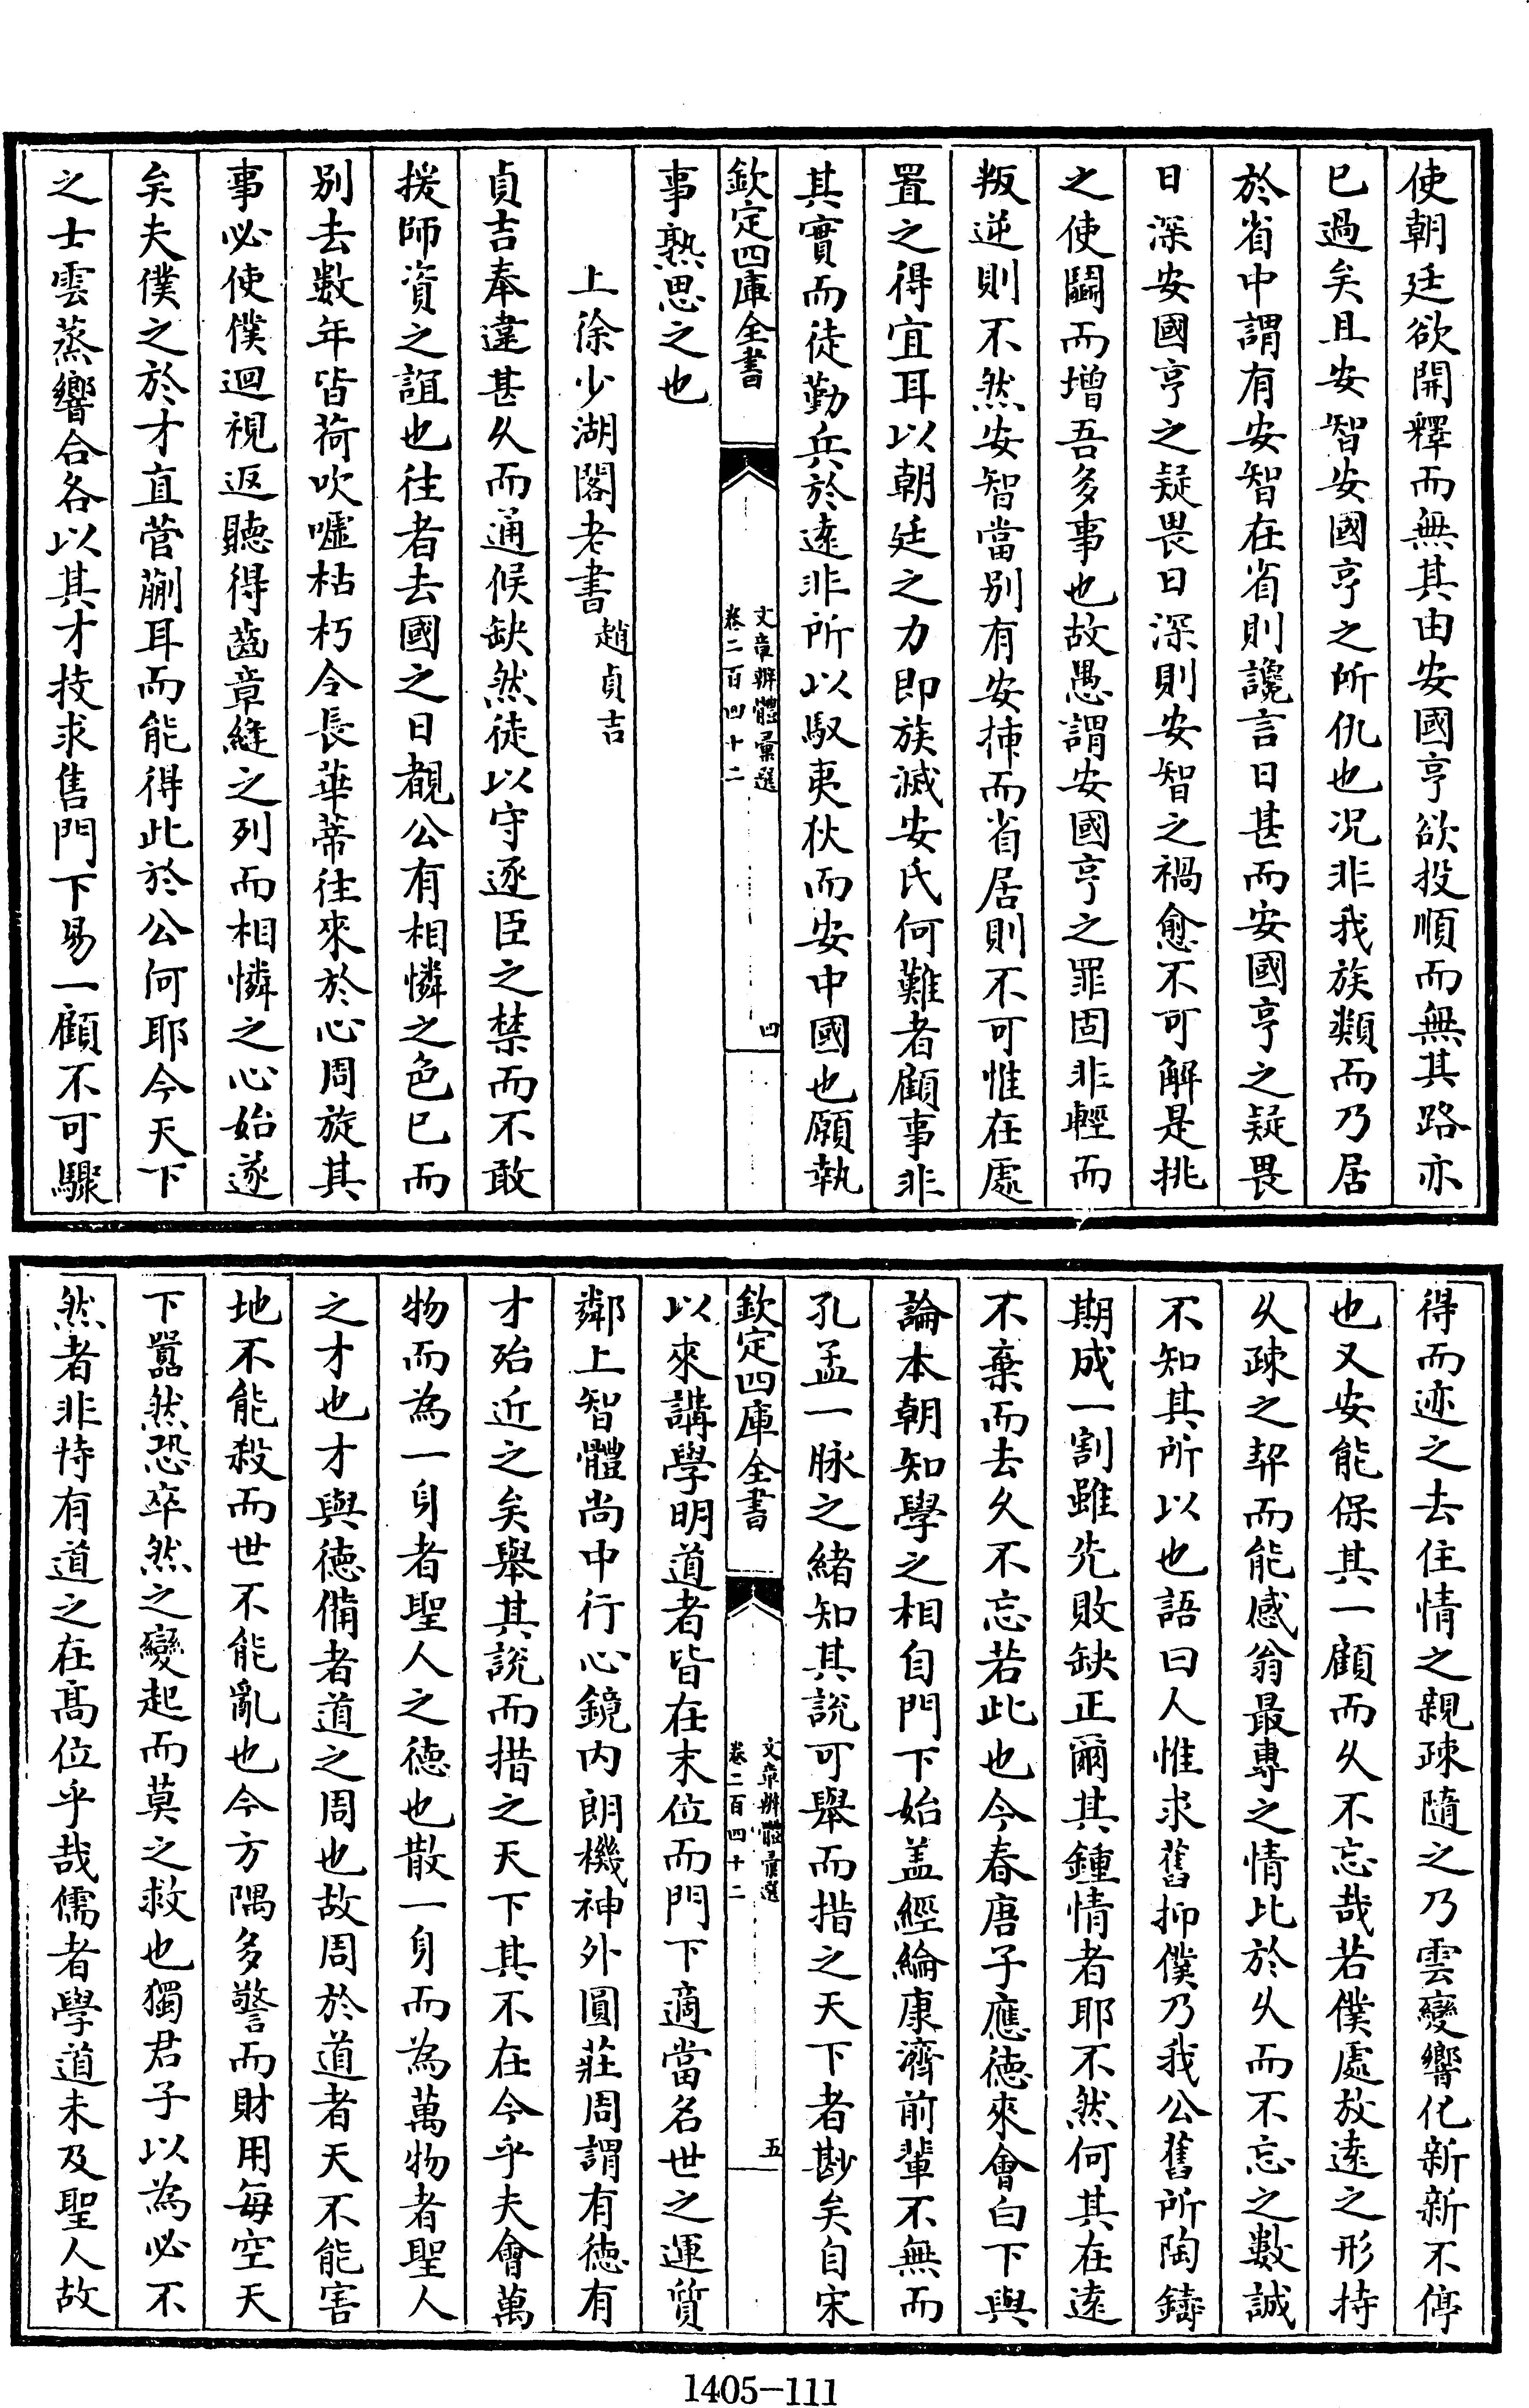 使朝廷欲開釋而無其由安國亨欲投順而無其路亦
已過矣且安智安國亨之所仇也况非我族類而乃居
於省中謂有安智在省則讒言日甚而安國亨之疑畏
日深安國亨之疑畏日深則安智之禍愈不可解是挑
之使鬭而增吾多事也故愚謂安國亨之罪固非輕而
叛逆則不然安智當别有安揷而省居則不可惟在處
置之得宜耳以朝廷之力即族滅安氏何難者顧事非
其實而徒勤兵於逺非所以馭夷狄而安中國也願執
欽定四庫全書
文章辨體彙選
卷二百四十二
四
事熟思之也
上徐少湖閣老書趙貞吉
貞吉奉違甚久而通候缺然徒以守逐臣之禁而不敢
援師資之誼也往者去國之日覩公有相憐之色已而
别去數年皆荷吹噓枯朽令長華蒂往來於心周旋其
事必使僕迴視返聽得齒章縫之列而相憐之心始遂
矣夫僕之於才直菅蒯耳而能得此於公何耶今天下
之士雲蒸響合各以其才技求售門下易一顧不可驟
得而迹之去住情之親疎隨之乃雲變響化新新不停
也又安能保其一顧而久不忘哉若僕處放逺之形持
久疎之契而能感翁最專之情比於久而不忘之數誠
不知其所以也語曰人惟求舊抑僕乃我公舊所陶鑄
期成一割雖先敗缺正爾其鍾情者耶不然何其在逺
不棄而去久不忘若此也今春唐子應徳來會白下與
論本朝知學之相自門下始盖經綸康濟前輩不無而
孔孟一脉之緒知其說可舉而措之天下者尠矣自宋
欽定四庫全書
文章辨體彙選
卷二百四十二
五
以來講學明道者皆在末位而門下適當名世之運質
鄰上智體尚中行心鏡内朗機神外圓莊周謂有徳有
才殆近之矣舉其說而措之天下其不在今乎夫會萬
物而為一身者聖人之徳也散一身而為萬物者聖人
之才也才與徳備者道之周也故周於道者天不能害
地不能殺而世不能亂也今方隅多警而財用每空天
下囂然恐卒然之變起而莫之救也獨君子以為必不
然者非恃有道之在髙位乎哉儒者學道未及聖人故
1405-111